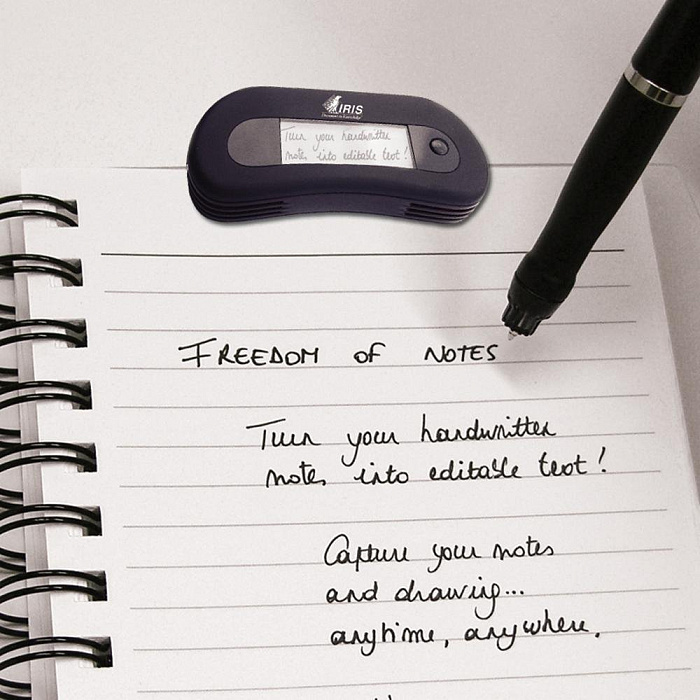 IRIS
Turn your handwritten
notes into editable text!
FREEDOM OF NOTES
Turn your handwritten
notes into editable text!
Capture your notes
and drawing...
anytime, anywhere.